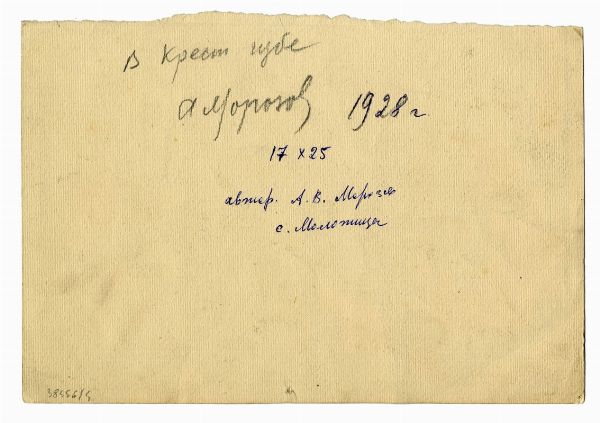 В Крест избе
А Морозов 1928 г
17 x 25
автор. А. В. Морозов
с. Молотицы